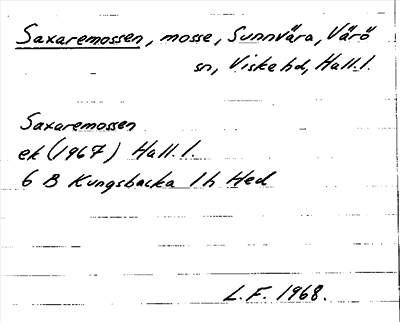 Saxaremossen, mosse, Sunnvära, Värö
sn, Viske hd, Hall. l.
Saxaremossen
ek (1967) Hall. l.
6 B Kungsbacka 1h Hed
L. F. 1968.